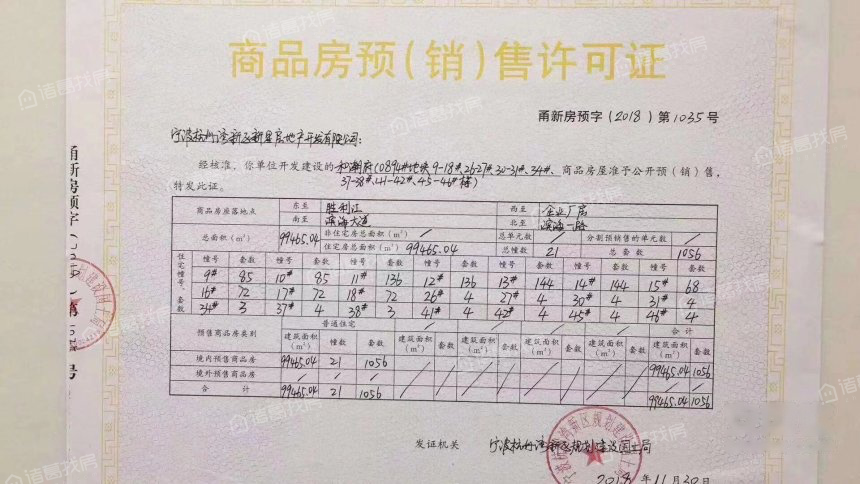 商品房预(销)售许可证
甬新房预字(2018)第1035号
宁波杭州湾新区新星房地产开发有限公司:
经核准,你单位开发建设的和湖府(0894#地块9-18#、26-27#、30-31#、34#、商品房屋准予公开预(销)售,
37-38#、41-42#、45-46#楼)
特发此证。
商品房座落地点 东至 胜利江 西至 企业厂房
南至 滨海大道 北至 滨海一路
总面积(m²) 99465.04 非住宅房总面积(m²) / 总单元数 / 分割预销售的单元数 /
住宅房总面积(m²) 99465.04 总幢数 21 总套数 1056
住宅幢号、套数 幢号 套数 幢号 套数 幢号 套数 幢号 套数 幢号 套数 幢号 套数 幢号 套数
9# 85 10# 85 11# 136 12# 136 13# 144 14# 144 15# 68
16# 72 17# 72 18# 72 26# 4 27# 4 30# 4 31# 4
34# 3 37# 4 38# 3 41# 4 42# 4 45# 4 46# 4
预售商品房类别 普通住宅 / / / / 合计
建筑面积(m²) 幢数 套数 建筑面积(m²) 套数 建筑面积(m²) 套数 建筑面积(m²) 套数 建筑面积(m²) 套数 建筑面积(m²) 套数
境内预售商品房 99465.04 21 1056 99465.04 1056
境外预售商品房 / / / / /
合计 99465.04 21 1056 99465.04 1056
发证机关 宁波杭州湾新区规划建设国土局
2018年11月30日
甬新房预字
第
号
诸葛找房